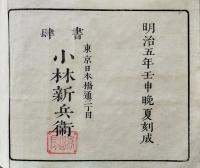 明治五年壬申晩夏刻成
東京日本橋通二丁目
書肆
小林新兵衛